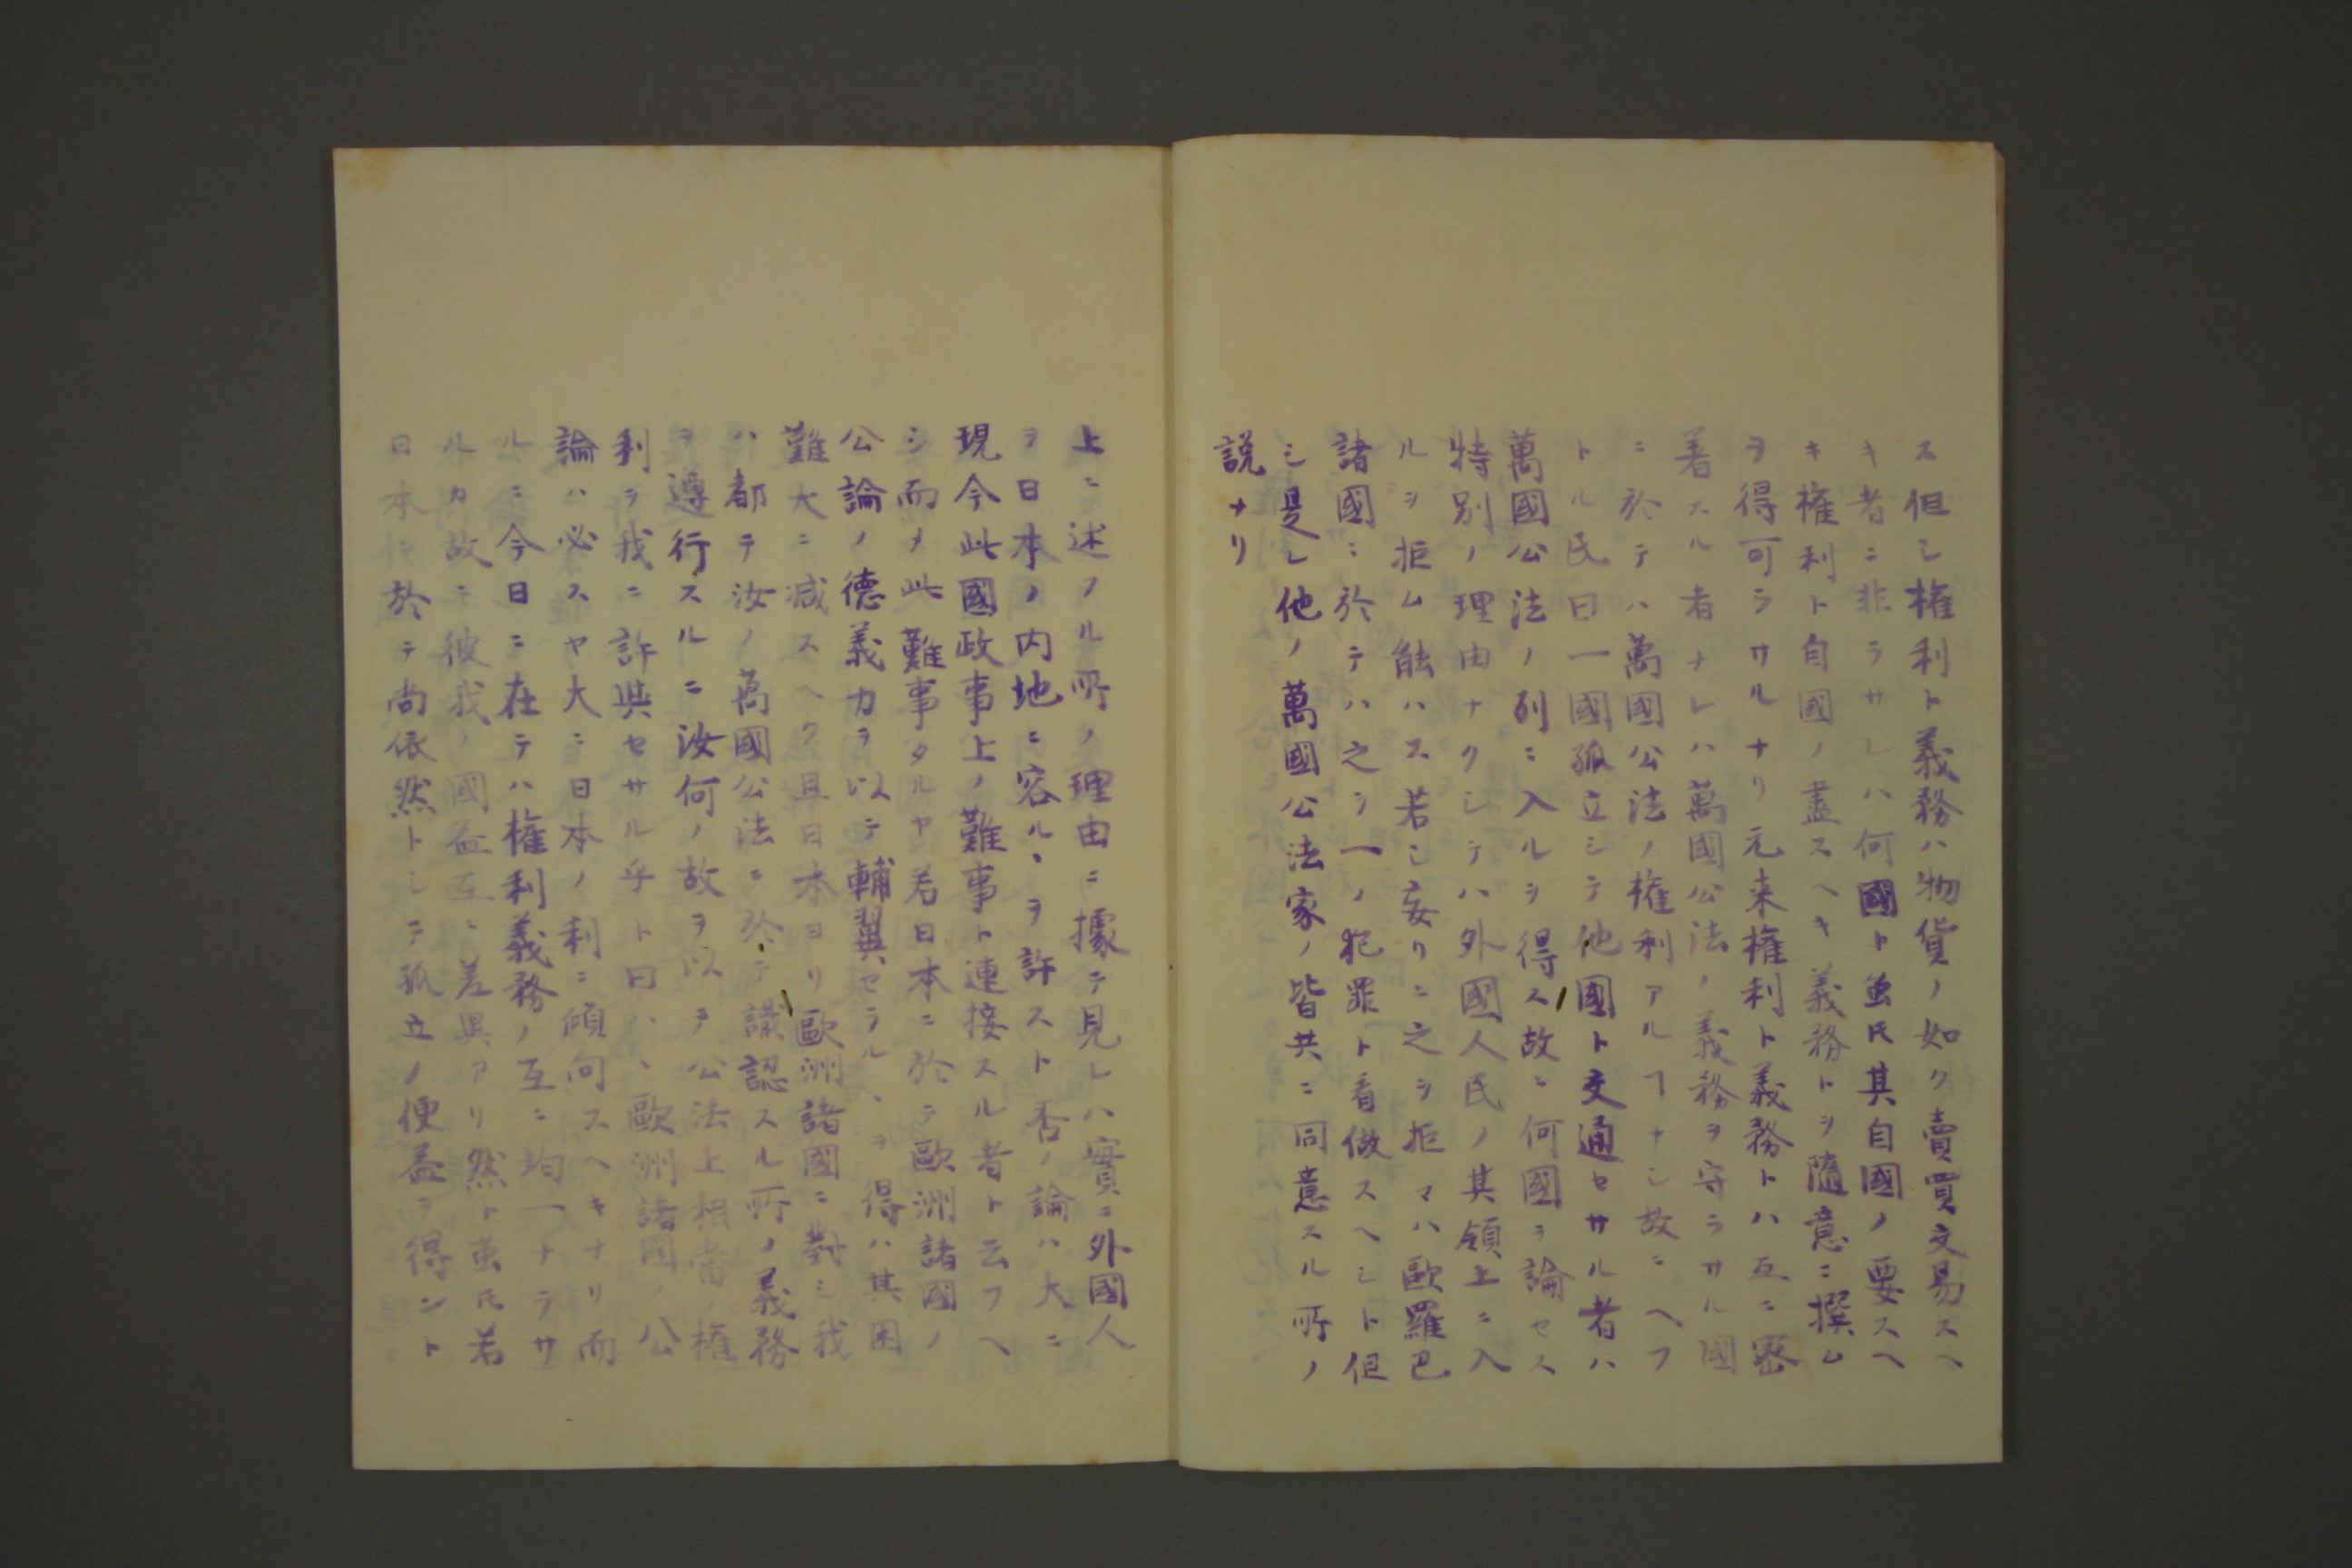 ス但シ権利ト義務ハ物貨ノ如ク賣買交易スヘ
キ者ニ非ラサレハ何國ト虽氏其自國ノ要スヘ
キ権利ト自國ノ盡スヘキ義務トヲ隨意ニ撰ム
ヲ得可ラサルナリ元来権利ト義務トハ互ニ密
着スル者ナレハ萬國公法ノ義務ヲ守ラサル國
ニ於テハ萬國公法ノ権利アルヿナシ故ニヘフ
トル氏曰一國孤立シテ他國ト交通セサル者ハ
萬國公法ノ列ニ入ルヲ得ス故ニ何國ヲ論セス
特別ノ理由ナクシテハ外國人民ノ其領上ニ入
ルヲ拒ム能ハス若シ妄リニ之ヲ拒マハ歐羅巴
諸國ニ於テハ之ヲ一ノ犯罪ト看做スヘシト但
シ是レ他ノ萬國公法家ノ皆共ニ同意スル所ノ
説ナリ
上ニ述フル所ノ理由ニ據テ見レハ實ニ外國人
ヲ日本ノ内地ニ容ルヽヲ許スト否ノ論ハ大ニ
現今此國政事上ノ難事ト連接スル者ト云フヘ
シ而メ此難事タルヤ若日本ニ於テ歐洲諸國ノ
公論ノ德義力ヲ以テ輔翼セラルヽヲ得ハ其困
難大ニ减スヘク且日本ヨリ歐洲諸國ニ對シ我
ハ都テ汝ノ萬國公法ニ於テ議認スル所ノ義務
ヲ遵行スルニ汝何ノ故ヲ以テ公法上相當ノ権
利ヲ我ニ許與セサル乎ト曰ハヽ歐洲諸國ノ公
論ハ必スヤ大ニ日本ノ利ニ傾向スヘキナリ而
ルニ今日ニ在テハ権利義務ノ互ニ均一ナラサ
ルカ故ニ彼我ノ國益互ニ差異アリ然ト虽氏若
日本ニ於テ尚依然トシテ孤立ノ便益ヲ得ント